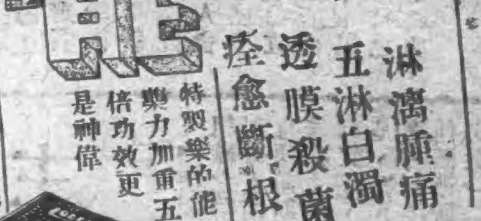 淋漓腫痛
五淋白濁
透膜殺菌
痊愈斷根
特製樂的能
藥力加重五
倍功效更
是神偉